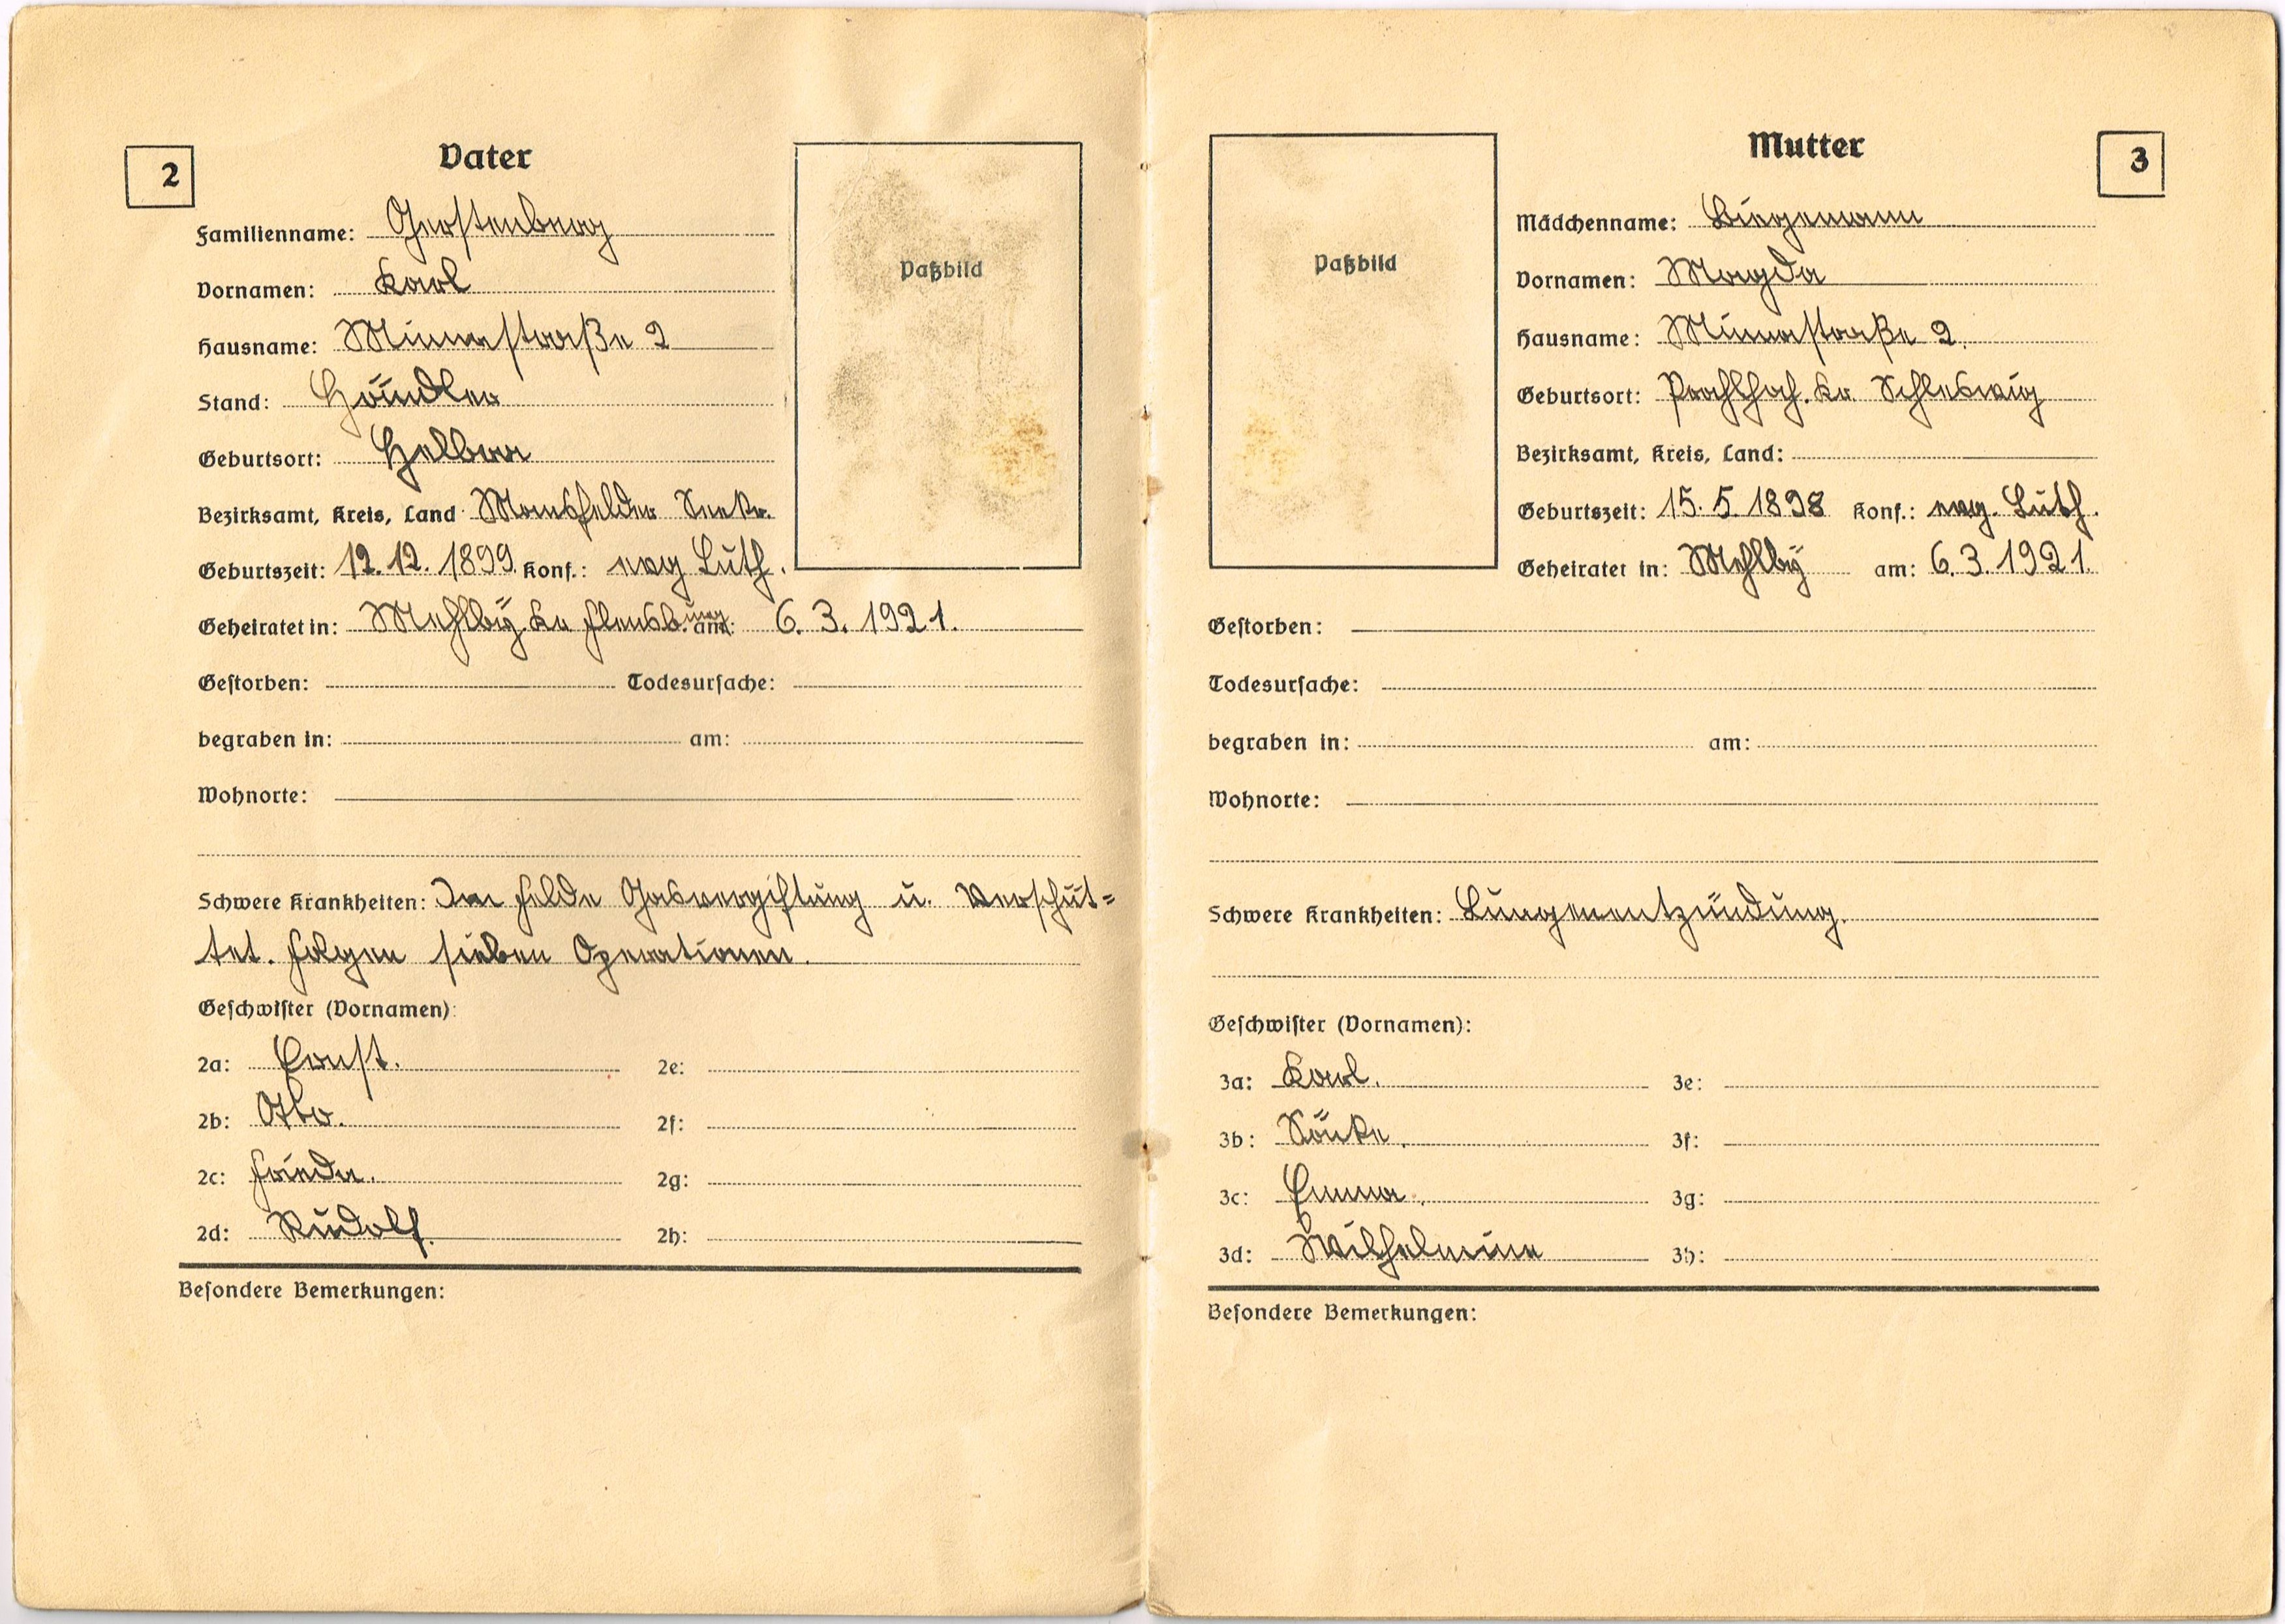 2
Vater
Familienname: Gerstenberg
Vornamen: Karl
Hausname: Minnastraße 2
Stand: Händler
Geburtsort: Helbra
Bezirksamt, Kreis, Land Mansfelder Seekr.
Geburtszeit: 12.12.1899. Konf.: evg Luth.
Geheiratet in: Mehlby. Kr Flensburg am: 6.3.1921.
Gestorben: Todesursache:
begraben in: am:
Wohnorte:
Schwere Krankheiten: Im Felde Gasvergiftung u. Verschüt=
tet. Folgen sieben Operationen.
Geschwister (Vornamen):
2a: Ernst. 2e:
2b: Otto. 2f:
2c: Frieda. 2g:
2d: Rudolf. 2h:
Besondere Bemerkungen:
Paßbild
3
Mutter
Paßbild
Mädchenname:
Vornamen: Magda
Hausname: Minnastraße 2.
Geburtsort: Kr. Schleswig
Bezirksamt, Kreis, Land:
Geburtszeit: 15.5.1898 Konf.: evg. Luth.
Geheiratet in: Mehlby am: 6.3.1921.
Gestorben:
Todesursache:
begraben in: am:
Wohnorte:
Schwere Krankheiten: Lungenentzündung.
Geschwister (Vornamen):
3a: Karl. 3e:
3b: Sönke. 3f:
3c: Emma. 3g:
3d: Wilhelmine 3h:
Besondere Bemerkungen: